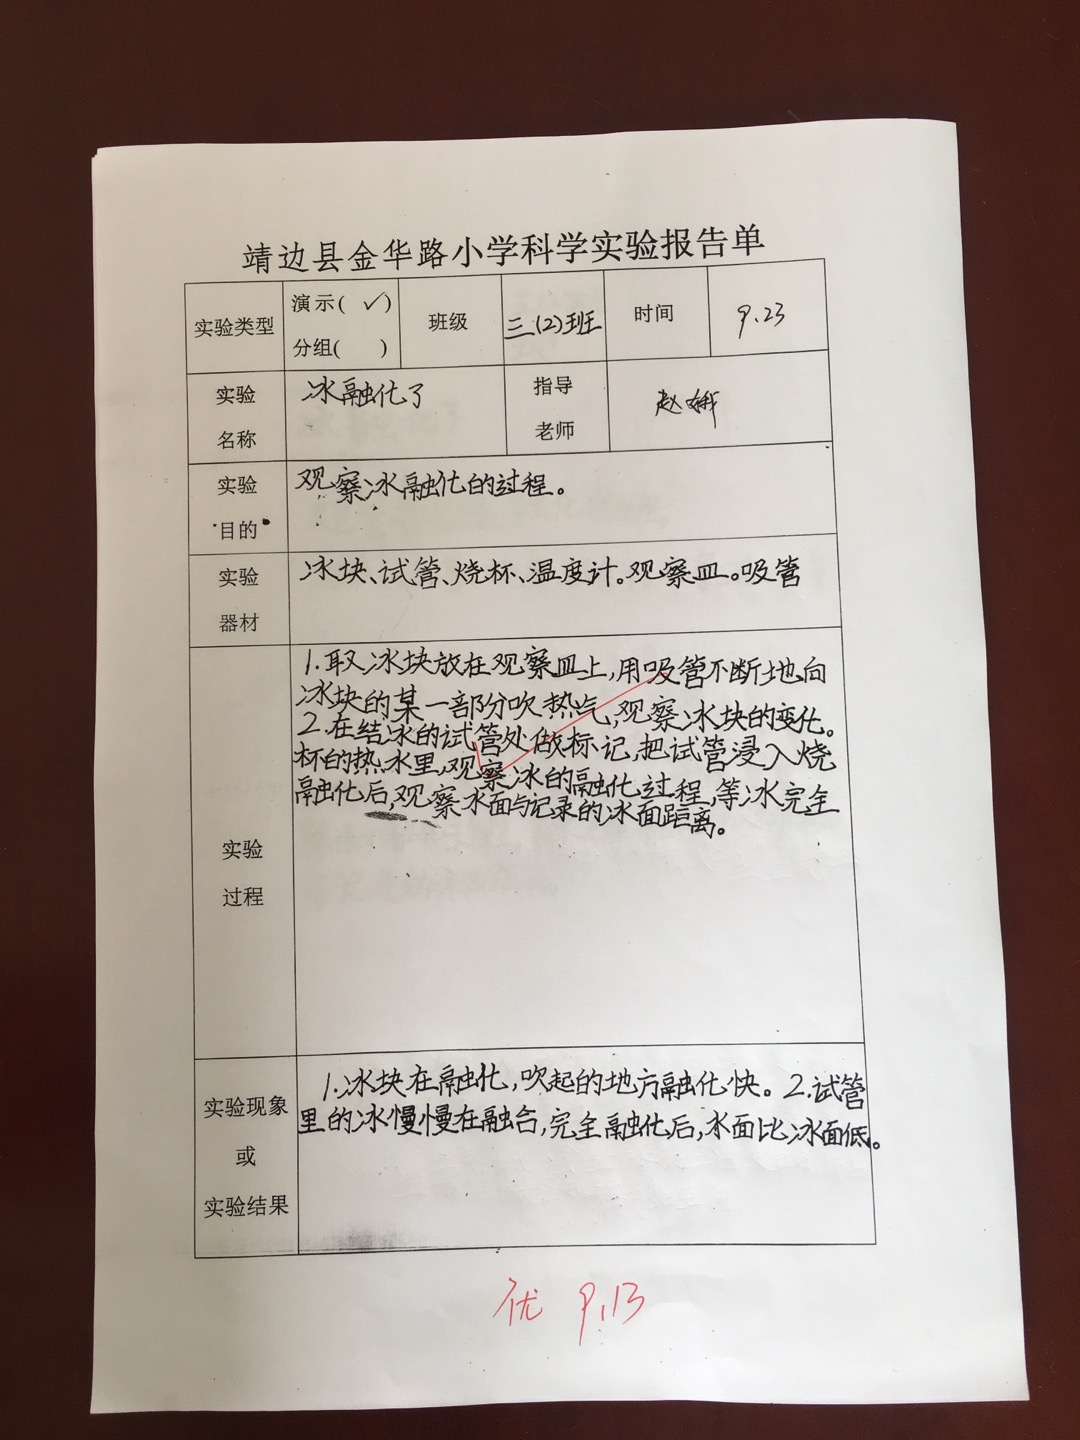 靖边县金华路小学科学实验报告单
实验类型 演示( ✓ ) 分组( ) 班级 三(2)班 时间 9.23
实验名称 冰融化了 指导老师 赵娥
实验目的 观察冰融化的过程。
实验器材 冰块、试管、烧杯、温度计。观察皿。吸管
实验过程
1.取冰块放在观察皿上,用吸管不断地向
冰块的某一部分吹热气,观察冰块的变化。
2.在结冰的试管处做标记,把试管浸入烧
杯的热水里,观察冰的融化过程,等冰完全
融化后,观察水面与记录的冰面距离。
实验现象或实验结果
1.冰块在融化,吹起的地方融化快。2.试管
里的冰慢慢在融合,完全融化后,水面比冰面低。
优 9.13